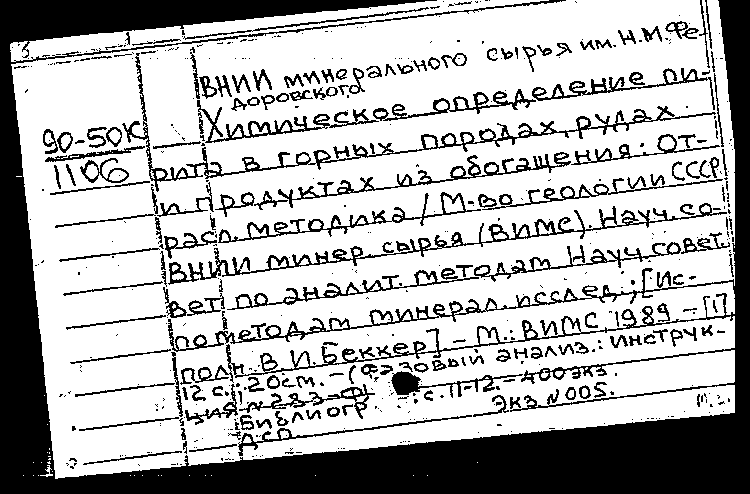 ВНИИ минерального сырья им. Н.М.Фе-
доровского
90-50К
1106
Химическое определение пи-
рита в горных породах, рудах
и продуктах из обогащения: От-
расл. методика / М-во геологии СССР
ВНИИ минер. сырья (ВИМС). Науч. со-
вет по аналит. методам Науч. совет.
по методам минерал. исслед.; [Ис-
полн. В.И.Беккер] - М.: ВИМС, 1989 - [1],
12 с.; 20см. - (Фазовый анализ.: инструк-
ция № 283-Ф)
Библиогр : с. 11-12. - 400 экз.
ДСП Экз N 005.